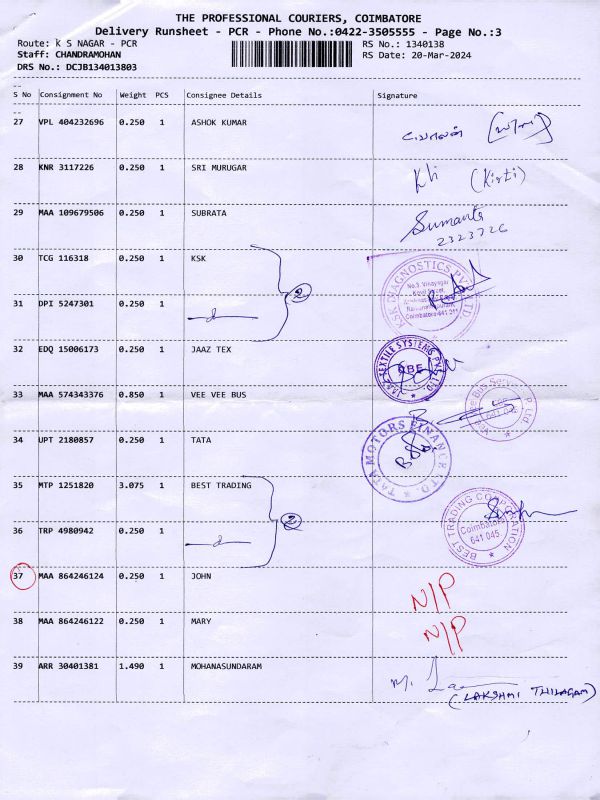 THE PROFESSIONAL COURIERS, COIMBATORE
Delivery Runsheet - PCR - Phone No.:0422-3505555 - Page No.:3
Route: K S NAGAR - PCR RS No.: 1340138
Staff: CHANDRAMOHAN RS Date: 20-Mar-2024
DRS No.: DCJB134013803
S No Consignment No Weight PCS Consignee Details Signature
27 VPL 404232696 0.250 1 ASHOK KUMAR
28 KNR 3117226 0.250 1 SRI MURUGAR (Kirti)
29 MAA 109679506 0.250 1 SUBRATA Sumanta
2323726
30 TCG 116318 0.250 1 KSK KSK DIAGNOSTICS PVT LTD
No.3, Vinayagar
Coimbatore-641
31 DPI 5247301 0.250 1 2
32 EDQ 15006173 0.250 1 JAAZ TEX JAAZ TEXTILE SYSTEMS PVT LTD
CBE
33 MAA 574343376 0.850 1 VEE VEE BUS
34 UPT 2180857 0.250 1 TATA TATA MOTORS FINANCE LTD
35 MTP 1251820 3.075 1 BEST TRADING BEST TRADING CORPORATION
Coimbatore
641 045.
36 TRP 4980942 0.250 1 2
37 MAA 864246124 0.250 1 JOHN N/P
38 MAA 864246122 0.250 1 MARY N/P
39 ARR 30401381 1.490 1 MOHANASUNDARAM M.
(LAKSHMI THILAGAM)